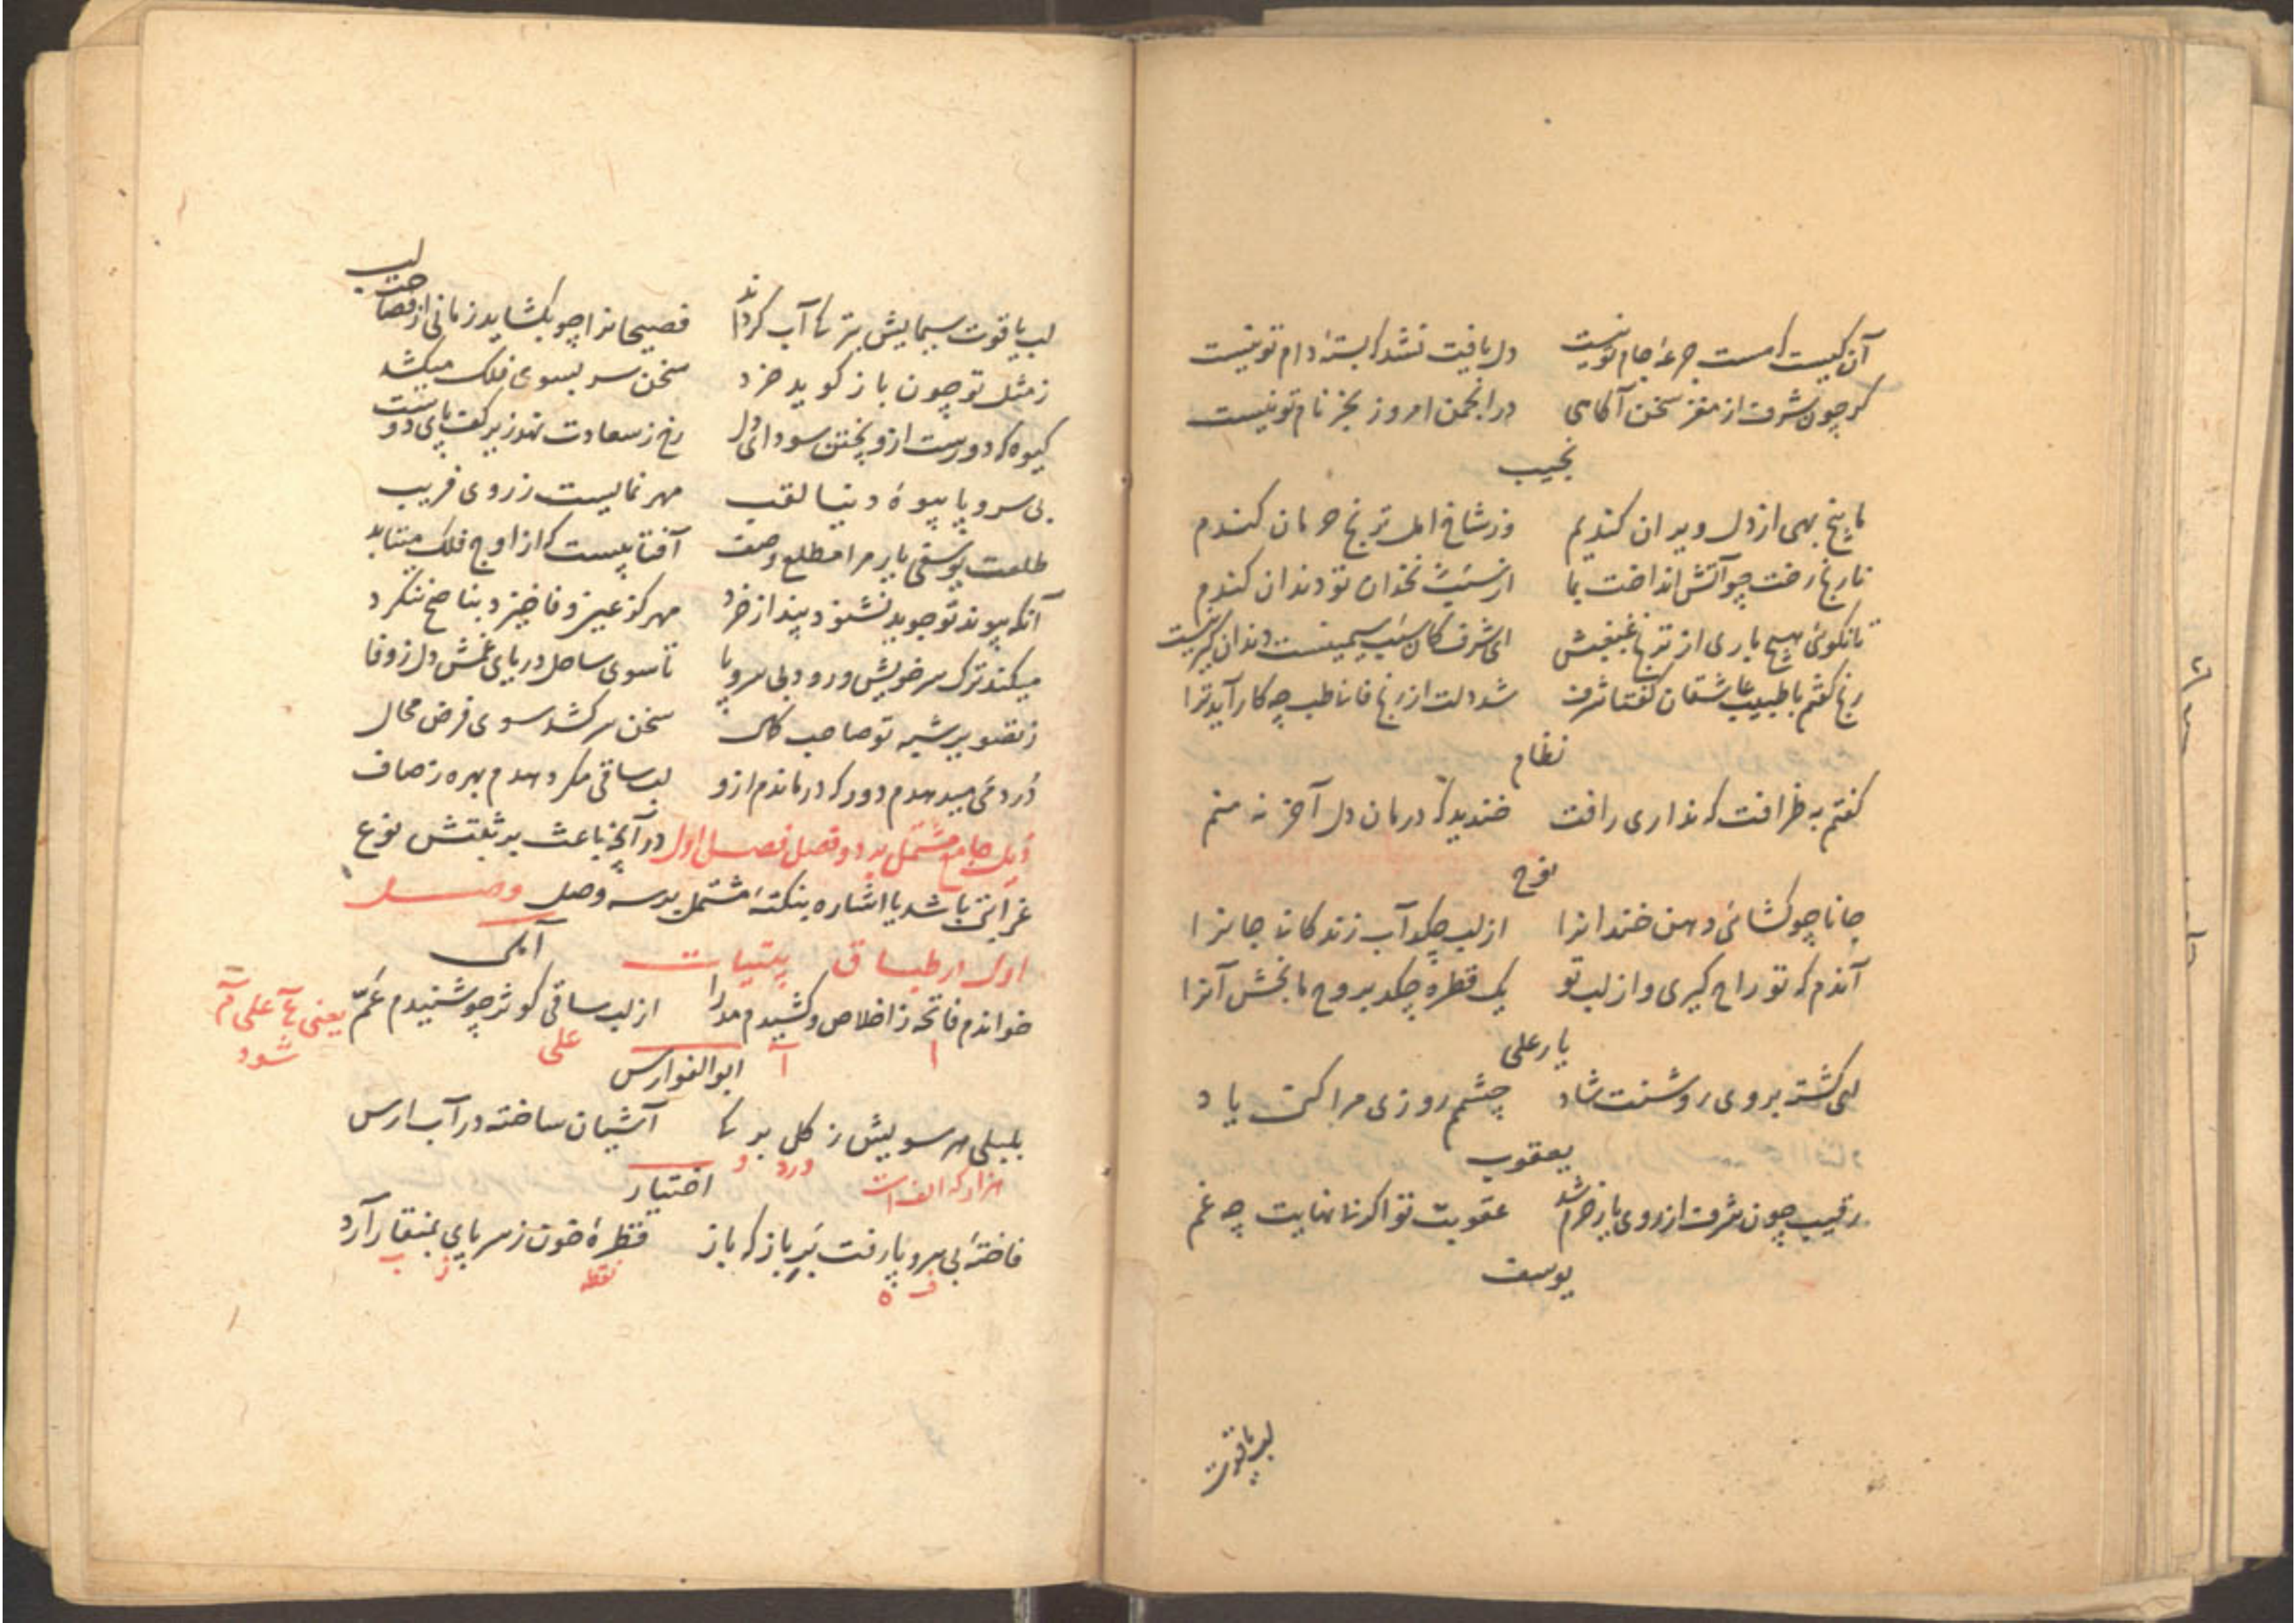 آن کیست که مست جرعهٔ جام تو نیست دل یافت نشد که بستهٔ دام تو نیست
کر چون شرف از مغز سخن آکاهی در انجمن امروز بجز نام تو نیست
نجیب
ما بیخ بهی از دل ویران کندیم وز شاخ امل ترنج حرمان کندم
نارنج رخت چو آتش انداخت بما از سیب نخدان تو دندان کندم
تا نکوئی هیچ یاری از ترنج غبغبش ای شرف کان سیب سیمینست دندان کیر نیست
رنج کفتم با طبیب عاشقان کفتا شرف شد دلت از رنج فانا طب چه کار آید ترا
نظام
کفتم به ظرافت که نداری رافت خندید که درمان دل آخر نه منم
نوح
جانا چو کشائی دهن خندانرا از لب چکد آب زندکانه جانرا
آندم که تو راح کیری و از لب تو یک قطره چکد بروح ما بخش آنرا
یار علی
لبی کشته بروی روشنت شاد چشم روزی مرا کن یاد
یعقوب
رقیب چون شرف از روی یار خرم شد عقوبت تو اکر نا نهایت چه غم
یوسف
لب یاقوت
لب یاقوت سیمایش بتر تا آب کرداند فصیحانرا چو بکشاید زمانی از فصاحت لب
ز مثل تو چون باز کوید خرد سخن سر بسوی فلک میکشد
کیوه که دورست ازو پختن سودای دل رخ ز سعادت نهد زیر کف پای دوست
بی سر و پا پیوهٔ دنیا لقب مهر نمایست ز روی فریب
طلعت یوسفی یار مرا مطلع وصف آفتابیست که از اوج فلک میتابد
آنکه پیوند تو جوید نشنود پند از خرد مهر کز عین وفا خیزد بناصح ننکرد
میکند ترک سر خویش و رود بی سر و پا تا سوی ساحل دریای غمش دل ز وفا
ز تصویر شبه تو صاحب کمال سخن سر کشد سوی فرض محال
درد می میدهدم دور که درماندم ازو لب ساقی مکر دهدم بهره ز صاف
ذیل جامع مشتمل بر دو فصل فصل اول در آنچه باعث بر ثبتش نوع
غرابتی باشد یا اشاره بنکتهٔ مشتمل بر سه وصل وصل
اول در طباق بینیات آبی
خواندم فاتحه ز اخلاص و کشیدم مد را از لب ساقی کوثر چو شنیدم عمّ یعنی عم علی م شود
ا آ علی
ابوالفوارس
بلبلی هر سویش ز کل بر تا آشیان ساخته در آب ارس
هزار که الف است ورد و
اختیار
فاختهٔ بی سر و پا رفت بَرِ باز که باز قطرهٔ خون ز سر پای بمنقار آرد
ف ه نقطه ز ب